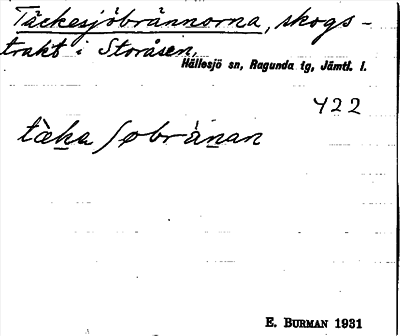 Täckesjöbrännorna, skogs-
trakt i Storåsen.
Hällesjö sn, Ragunda tg, Jämtl. l.
422
tæ̀ka ʃøbrànan
E. BURMAN 1931